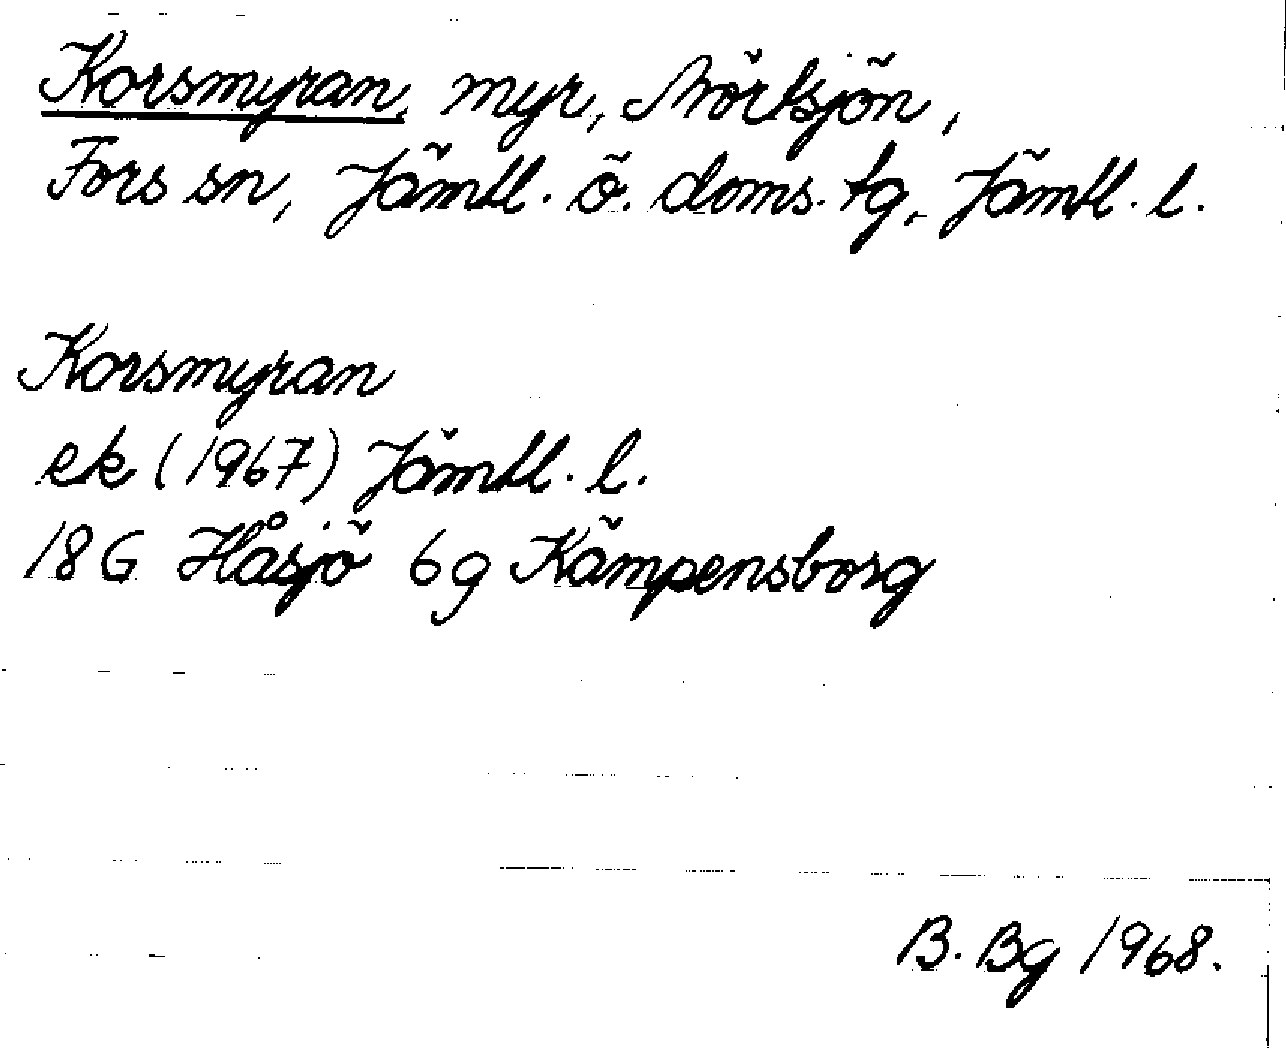 Korsmyran, myr, Mörtsjön,
Fors sn, Jämtl. ö. doms. tg, Jämtl. l.
Korsmyran
ek (1967) Jämtl. l.
18G Håsjö 6g Kämpensborg
B. Bg 1968.